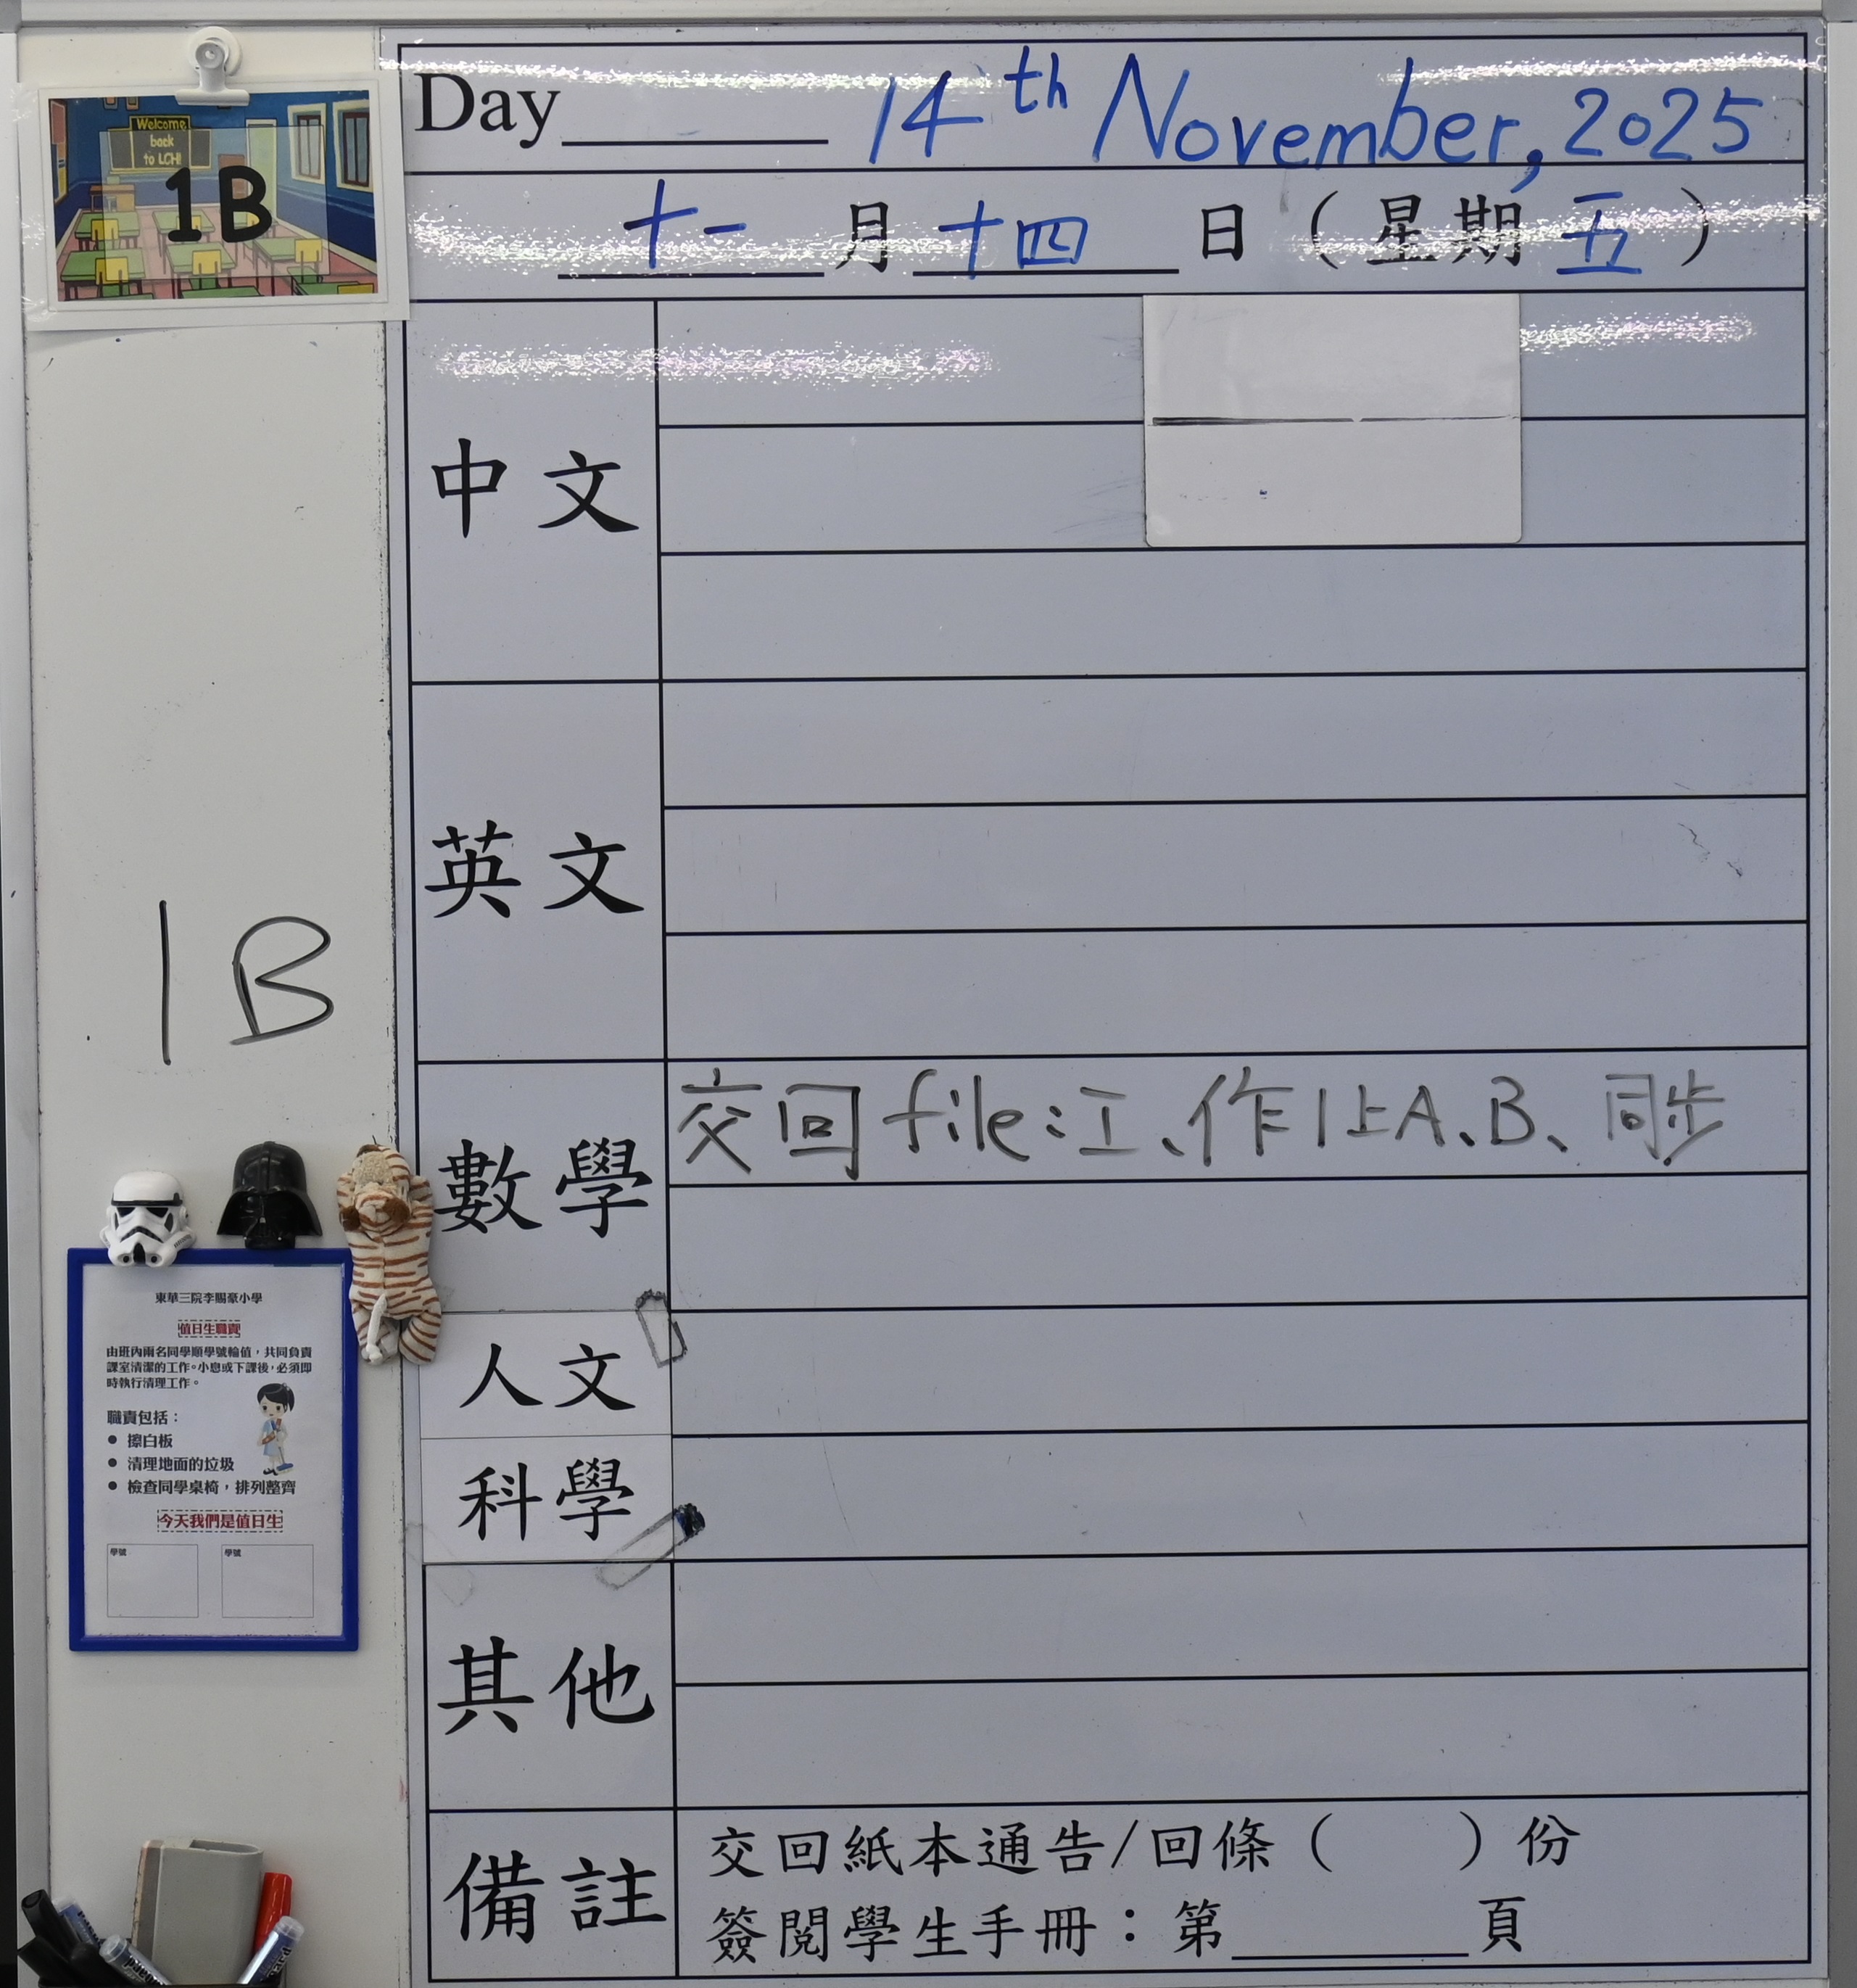 Welcome
back
to LCH!
1B
Day 14th November, 2025
十一月十四日（星期五）
中文
英文
1B
數學
交回file:工、作1上A、B、同步
人文
科學
其他
備註
交回紙本通告/回條（　　）份
簽閱學生手冊：第______頁
東華三院李賜豪小學
值日生職責
由班內兩名同學順學號輪值，共同負責
課室清潔的工作。小息或下課後，必須即
時執行清理工作。
職責包括：
● 擦白板
● 清理地面的垃圾
● 檢查同學桌椅，排列整齊
今天我們是值日生
學號
學號